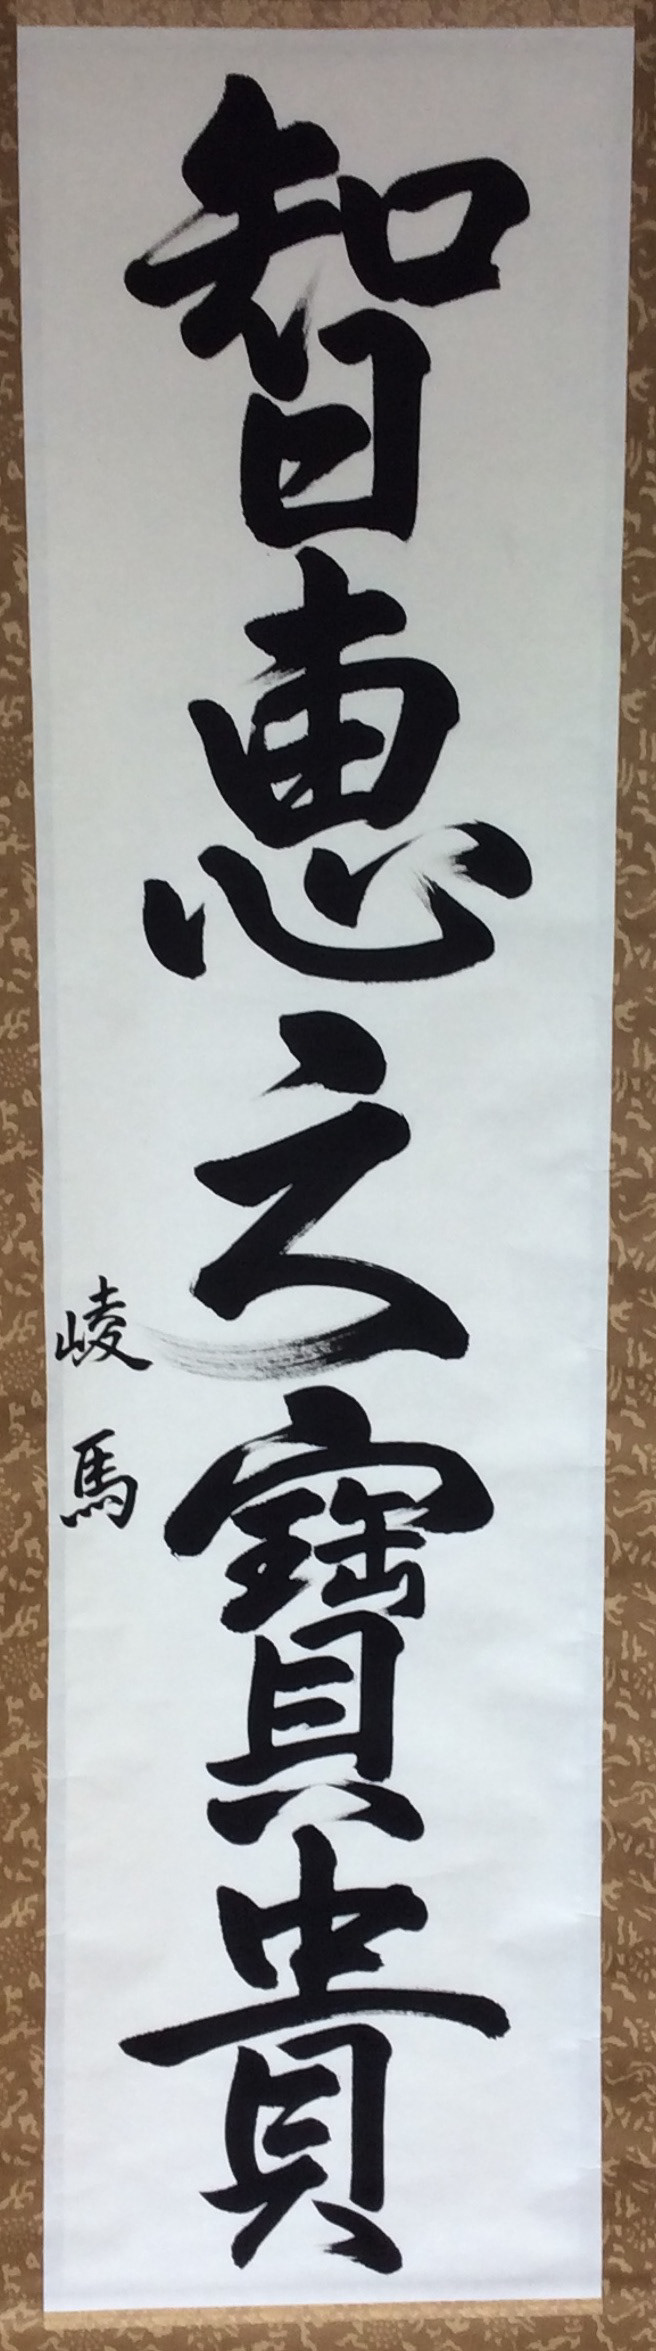 智恵之寶貴
崚馬